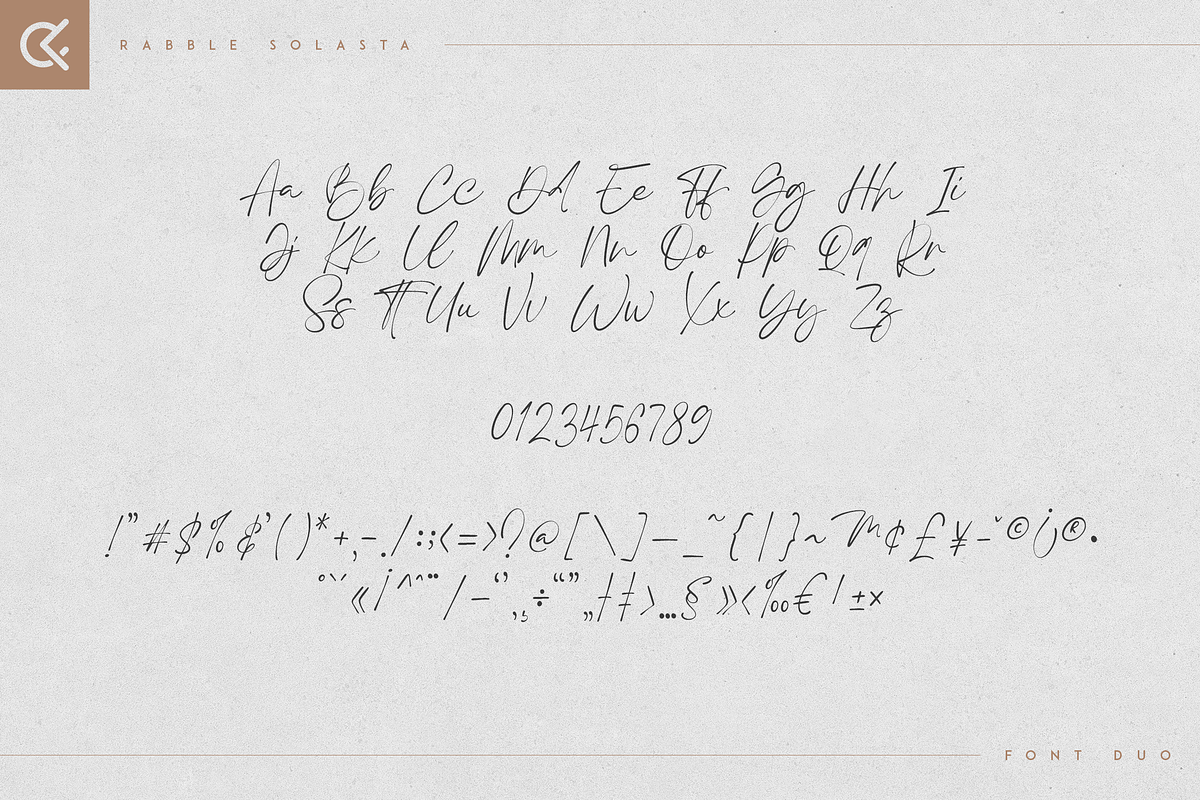 RABBLE SOLASTA
Aa Bb Cc Dd Ee Ff Gg Hh Ii
Jj Kk Ll Mm Nn Oo Pp Qq Rr
Ss Tt Uu Vv Ww Xx Yy Zz
0123456789
!"#$%&'()*+,-./:;<=>?@[\]—_~{|}~™¢£¥-ˇ©j®.
°`´«¡^^¨/–‘’‚¸÷“”„†‡›…§»‹‰€/±×
FONT DUO